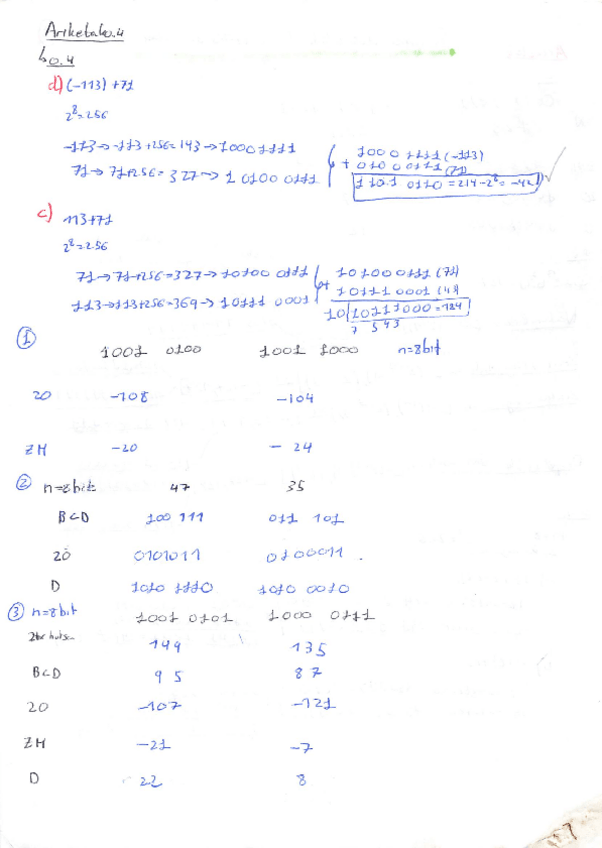 Ariketak.4
b0.4
d) (-113) + 71
2⁸=256
-113→-113+256=143→1000 1111
71→71+256=327→1 0100 0111
1000 1111 (-113)
+ 0100 0111 (71)
1 1 0 1 0110 = 214-2⁸ = -42 ✓
c) 113+71
2⁸=256
71→71+256=327→10100 0111
113→113+256=369→10111 0001
10 100 0111 (71)
+ 10111 0001
10 1011 1000 = 184
7 5 4 3
① 1001 0100 1001 1000 n=8bit
20 -108 -104
ZH -20 - 24
② n=8bit 47 35
BCD 100 111 011 101
20 0101011 0100011 .
D 1010 1110 1010 0010
③ n=8bit 1001 0101 1000 0111
149 135
BCD 9 5 8 7
20 -107 -121
ZH -21 -7
D 22 8